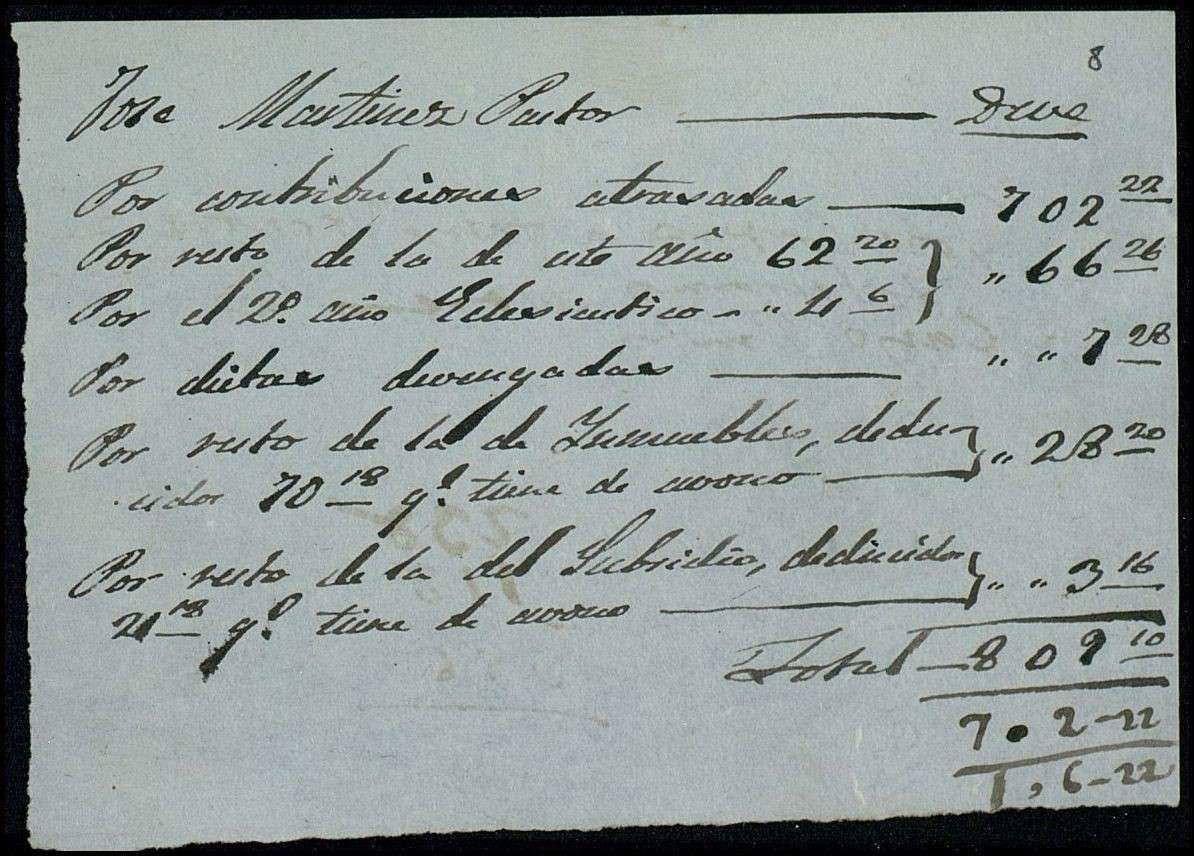 8
Jose Martinez Pastor ——— Deve
Por contribuciones atrasadas ——— 702 22
Por resto de la de este año 62 20 } „ 66 26
Por el 2º. año Eclesiastico - „ 4 6
Por dietas devengadas ——— „ „ 7 28
Por resto de la de Inmuebles, dedu- } „ 28 20
cidos 70 18 qe. tiene de avono ———
Por resto de la del Subsidio, deducidos } „ „ 3 16
21 18 qe. tiene de avono ———
Total — 809 10
702-22
1,6-22